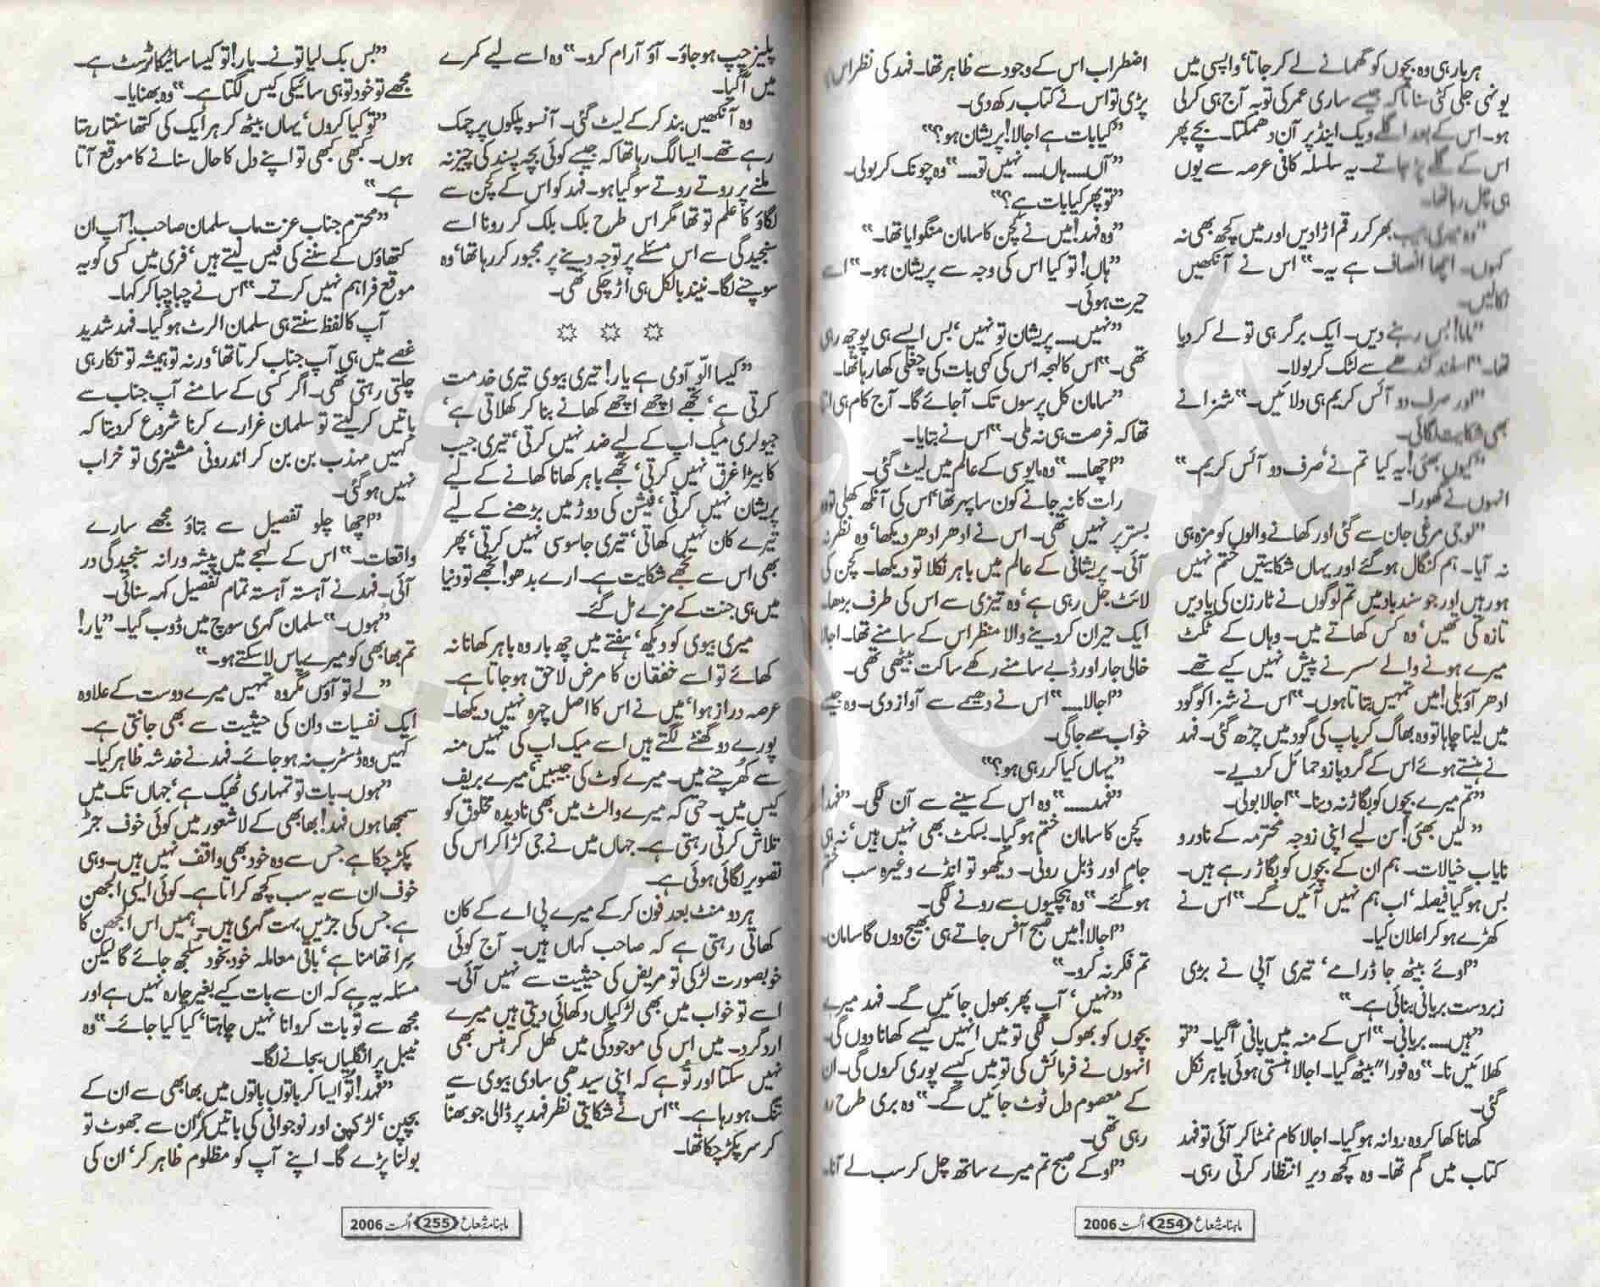 ہر بار ہی وہ بچوں کو گھمانے لے کر جاتا‘ واپسی میں
یونہی جلی کٹی سناتا کہ جیسے ساری عمر کی توبہ آج ہی کرلی
ہو۔ اس کے بعد اگلے ویک اینڈ پر آن دھمکتا۔ بچے پھر
اس کے گلے پڑ جاتے۔ یہ سلسلہ کافی عرصہ سے یوں
ہی چل رہا تھا۔
”وہ میری جیب بھر کر رقم اڑادیں اور میں کچھ بھی نہ
کہوں۔ اچھا انصاف ہے یہ۔“ اس نے آنکھیں
نکالیں۔
”ماما! بس رہنے دیں۔ ایک برگر ہی تو لے کر دیا
تھا۔“ اسفند کندھے سے لٹک کر بولا۔
”اور صرف دو آئس کریم ہی دلائیں۔“ شنزا نے
بھی شکایت لگائی۔
”کیوں بھئی! یہ کیا تم نے‘ صرف دو آئس کریم۔“
انہوں نے گھورا۔
”لو جی مرغی جان سے گئی اور کھانے والوں کو مزہ ہی
نہ آیا۔ ہم کنگال ہوگئے اور یہاں شکایتیں ختم نہیں
ہو رہیں اور جو سند باد میں تم لوگوں نے ٹارزن کی یادیں
تازہ کی تھیں‘ وہ کس کھاتے میں۔ وہاں کے ٹکٹ
میرے ہونے والے سسر نے پیش نہیں کیے تھے۔
ادھر آؤ بلی! میں تمہیں بتاتا ہوں۔“ اس نے شنزا کو گود
میں لینا چاہا تو وہ بھاگ کر باپ کی گود میں چڑھ گئی۔ فہد
نے ہنستے ہوئے اس کے گرد بازو حمائل کردیے۔
”تم میرے بچوں کو بگاڑ نہ دینا۔“ اجالا بولی۔
”لیں بھئی! سن لیے اپنی زوجہ محترمہ کے نادر و
نایاب خیالات۔ ہم ان کے بچوں کو بگاڑ رہے ہیں۔
بس ہوگیا فیصلہ‘ اب ہم نہیں آئیں گے۔“ اس نے
کھڑے ہو کر اعلان کیا۔
”اوئے بیٹھ جا ڈرامے‘ تیری آپی نے بڑی
زبردست بریانی بنائی ہے۔“
”ہیں..... بریانی۔“ اس کے منہ میں پانی آگیا۔ ”تو
کھلائیں نا۔“ وہ فوراً بیٹھ گیا۔ اجالا ہنستی ہوئی باہر نکل
گئی۔
کھانا کھا کر وہ روانہ ہوگیا۔ اجالا کام نمٹا کر آئی تو فہد
کتاب میں گم تھا۔ وہ کچھ دیر انتظار کرتی رہی۔
اضطراب اس کے وجود سے ظاہر تھا۔ فہد کی نظر اس
پڑی تو اس نے کتاب رکھ دی۔
”کیا بات ہے اجالا! پریشان ہو؟“
”آں..... ہاں..... نہیں تو.....“ وہ چونک کر بولی۔
”تو پھر کیا بات ہے؟“
”وہ فہد! میں نے کچن کا سامان منگوایا تھا۔“
”ہاں! تو کیا اس کی وجہ سے پریشان ہو۔“ اسے
حیرت ہوئی۔
”نہیں..... پریشان تو نہیں‘ بس ایسے ہی پوچھ رہی
تھی۔“ اس کا لہجہ اس کی کہی بات کی چغلی کھا رہا تھا۔
”سامان کل پرسوں تک آجائے گا۔ آج کام ہی اتنا
تھا کہ فرصت ہی نہ ملی۔“ اس نے بتایا۔
”اچھا.....“ وہ مایوسی کے عالم میں لیٹ گئی۔
رات کا نہ جانے کون سا پہر تھا‘ اس کی آنکھ کھلی تو وہ
بستر پر نہیں تھی۔ اس نے ادھر ادھر دیکھا‘ وہ نظر نہ
آئی۔ پریشانی کے عالم میں باہر نکلا تو دیکھا۔ کچن کی
لائٹ جل رہی ہے‘ وہ تیزی سے اس کی طرف بڑھا۔
ایک حیران کردینے والا منظر اس کے سامنے تھا۔ اجالا
خالی جار اور ڈبے سامنے رکھے ساکت بیٹھی تھی۔
”اجالا.....“ اس نے دھیمے سے آواز دی۔ وہ جیسے
خواب سے جاگی۔
”یہاں کیا کر رہی ہو؟“
”فہد.....“ وہ اس کے سینے سے آن لگی۔ ”فہد!
کچن کا سامان ختم ہوگیا۔ بسکٹ بھی نہیں ہیں‘ نہ ہی
جام اور ڈبل روٹی۔ دیکھو تو انڈے وغیرہ سب ختم
ہوگئے۔“ وہ ہچکیوں سے رونے لگی۔
”اجالا! میں صبح آفس جاتے ہی بھیج دوں گا سامان۔
تم فکر نہ کرو۔“
”نہیں‘ آپ پھر بھول جائیں گے۔ فہد میرے
بچوں کو بھوک لگی تو میں انہیں کیسے کھانا دوں گی۔
انہوں نے فرمائش کی تو میں کیسے پوری کروں گی۔ ان
کے معصوم دل ٹوٹ جائیں گے۔“ وہ بری طرح رو
رہی تھی۔
”اوکے صبح تم میرے ساتھ چل کر سب لے آنا۔
ماہنامہ شعاع 254 اگست 2006
پلیز چپ ہوجاؤ۔ آؤ آرام کرو۔“ وہ اسے لیے کمرے
میں آگیا۔
وہ آنکھیں بند کرکے لیٹ گئی۔ آنسو پلکوں پر چمک
رہے تھے۔ ایسا لگ رہا تھا کہ جیسے کوئی بچہ پسند کی چیز نہ
ملنے پر روتے روتے سوگیا ہو۔ فہد کو اس کے کچن سے
لگاؤ کا علم تو تھا مگر اس طرح بلک بلک کر رونا اسے
سنجیدگی سے اس مسئلے پر توجہ دینے پر مجبور کر رہا تھا‘ وہ
سوچنے لگا۔ نیند بالکل ہی اڑ چکی تھی۔
”کیسا الّو آدمی ہے یار! تیری بیوی تیری خدمت
کرتی ہے‘ تجھے اچھے اچھے کھانے بنا کر کھلاتی ہے‘
جیولری میک اپ کے لیے ضد نہیں کرتی‘ تیری جیب
کا بیڑا غرق نہیں کرتی‘ تجھے باہر کھانا کھانے کے لیے
پریشان نہیں کرتی‘ فیشن کی دوڑ میں بڑھنے کے لیے
تیرے کان نہیں کھاتی‘ تیری جاسوسی نہیں کرتی‘ پھر
بھی اس سے تجھے شکایت ہے۔ ارے بدھو! تجھے تو دنیا
میں ہی جنت کے مزے مل گئے۔
میری بیوی کو دیکھ‘ ہفتے میں چھ بار وہ باہر کھانا نہ
کھائے تو اسے خفقان کا مرض لاحق ہوجاتا ہے۔
عرصہ دراز ہوا‘ میں نے اس کا اصل چہرہ نہیں دیکھا۔
پورے دو گھنٹے لگتے ہیں اسے میک اپ کی تہیں منہ
سے کھرچنے میں۔ میرے کوٹ کی جیبیں‘ میرے بریف
کیس میں۔ حتی کہ میرے والٹ میں بھی نادیدہ مخلوق کو
تلاش کرتی رہتی ہے۔ جہاں میں نے جی کڑا کر اس کی
تصویر لگائی ہوئی ہے۔
ہر دو منٹ بعد فون کرکے میرے پی اے کے کان
کھاتی رہتی ہے کہ صاحب کہاں ہیں۔ آج کوئی
خوبصورت لڑکی تو مریض کی حیثیت سے نہیں آئی۔
اسے تو خواب میں بھی لڑکیاں دکھائی دیتی ہیں میرے
ارد گرد۔ میں اس کی موجودگی میں کھل کر ہنس بھی
نہیں سکتا اور تو ہے کہ اپنی سیدھی سادی بیوی سے
تنگ ہو رہا ہے۔“ اس نے شکایتی نظر فہد پر ڈالی جو بھنّا
کر سر پکڑ چکا تھا۔
”بس بک لیا تو نے۔ یار! تو کیسا سائیکاٹرسٹ ہے۔
مجھے تو خود تو ہی سائیکی کیس لگتا ہے۔“ وہ بھنایا۔
”تو کیا کروں‘ یہاں بیٹھ کر ہر ایک کی کتھا سنتا رہتا
ہوں۔ کبھی کبھی تو اپنے دل کا حال سنانے کا موقع آتا
ہے۔“
”محترم جناب عزت ماب سلمان صاحب! آپ ان
کتھاؤں کے سننے کی فیس لیتے ہیں‘ فری میں کسی کو یہ
موقع فراہم نہیں کرتے۔“ اس نے چبا چبا کر کہا۔
آپ کا لفظ سنتے ہی سلمان الرٹ ہوگیا۔ فہد شدید
غصے میں ہی آپ جناب کرتا تھا‘ ورنہ تو ہمیشہ تو تکار ہی
چلتی رہتی تھی۔ اگر کسی کے سامنے آپ جناب سے
باتیں کرلیتے تو سلمان غرارے کرنا شروع کردیتا کہ
کہیں مہذب بن بن کر اندرونی مشینری تو خراب
نہیں ہوگئی۔
”اچھا چلو تفصیل سے بتاؤ مجھے سارے
واقعات۔“ اس کے لہجے میں پیشہ ورانہ سنجیدگی در
آئی۔ فہد نے آہستہ آہستہ تمام تفصیل کہہ سنائی۔
”ہوں۔“ سلمان گہری سوچ میں ڈوب گیا۔ ”یار!
تم بھابھی کو میرے پاس لا سکتے ہو۔“
”لے تو آؤں مگر وہ تمہیں میرے دوست کے علاوہ
ایک نفسیات دان کی حیثیت سے بھی جانتی ہے۔
کہیں وہ ڈسٹرب نہ ہوجائے۔ فہد نے خدشہ ظاہر کیا۔
”ہوں۔ بات تو تمہاری ٹھیک ہے‘ جہاں تک میں
سمجھا ہوں فہد! بھابھی کے لاشعور میں کوئی خوف جڑ
پکڑ چکا ہے جس سے وہ خود بھی واقف نہیں ہیں۔ وہی
خوف ان سے یہ سب کچھ کراتا ہے۔ کوئی ایسی الجھن
ہے جس کی جڑیں بہت گہری ہیں۔ ہمیں اس الجھن کا
سرا تھامنا ہے‘ باقی معاملہ خود بخود سلجھ جائے گا لیکن
مسئلہ یہ ہے کہ ان سے بات کیے بغیر چارہ نہیں ہے اور
مجھ سے تو بات کروانا نہیں چاہتا‘ کیا کیا جائے۔“ وہ
ٹیبل پر انگلیاں بجانے لگا۔
”فہد! تو ایسا کر باتوں باتوں میں بھابھی سے ان کے
بچپن‘ لڑکپن اور نوجوانی کی باتیں کر‘ ان سے جھوٹ تو
بولنا پڑے گا۔ اپنے آپ کو مظلوم ظاہر کر‘ ان کی
ماہنامہ شعاع 255 اگست 2006